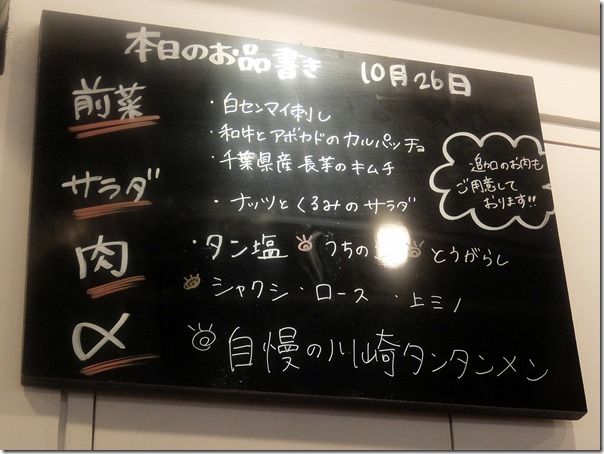 本日のお品書き 10月26日
前菜
・白センマイ刺し
・和牛とアボカドのカルパッチョ
・千葉県産長芋のキムチ
サラダ
・ナッツとくるみのサラダ
追加のお肉も
ご用意して
おります!!
肉
・タン塩 うちの とうがらし
シャクシ・ロース ・上ミノ
〆
自慢の川崎タンタンメン